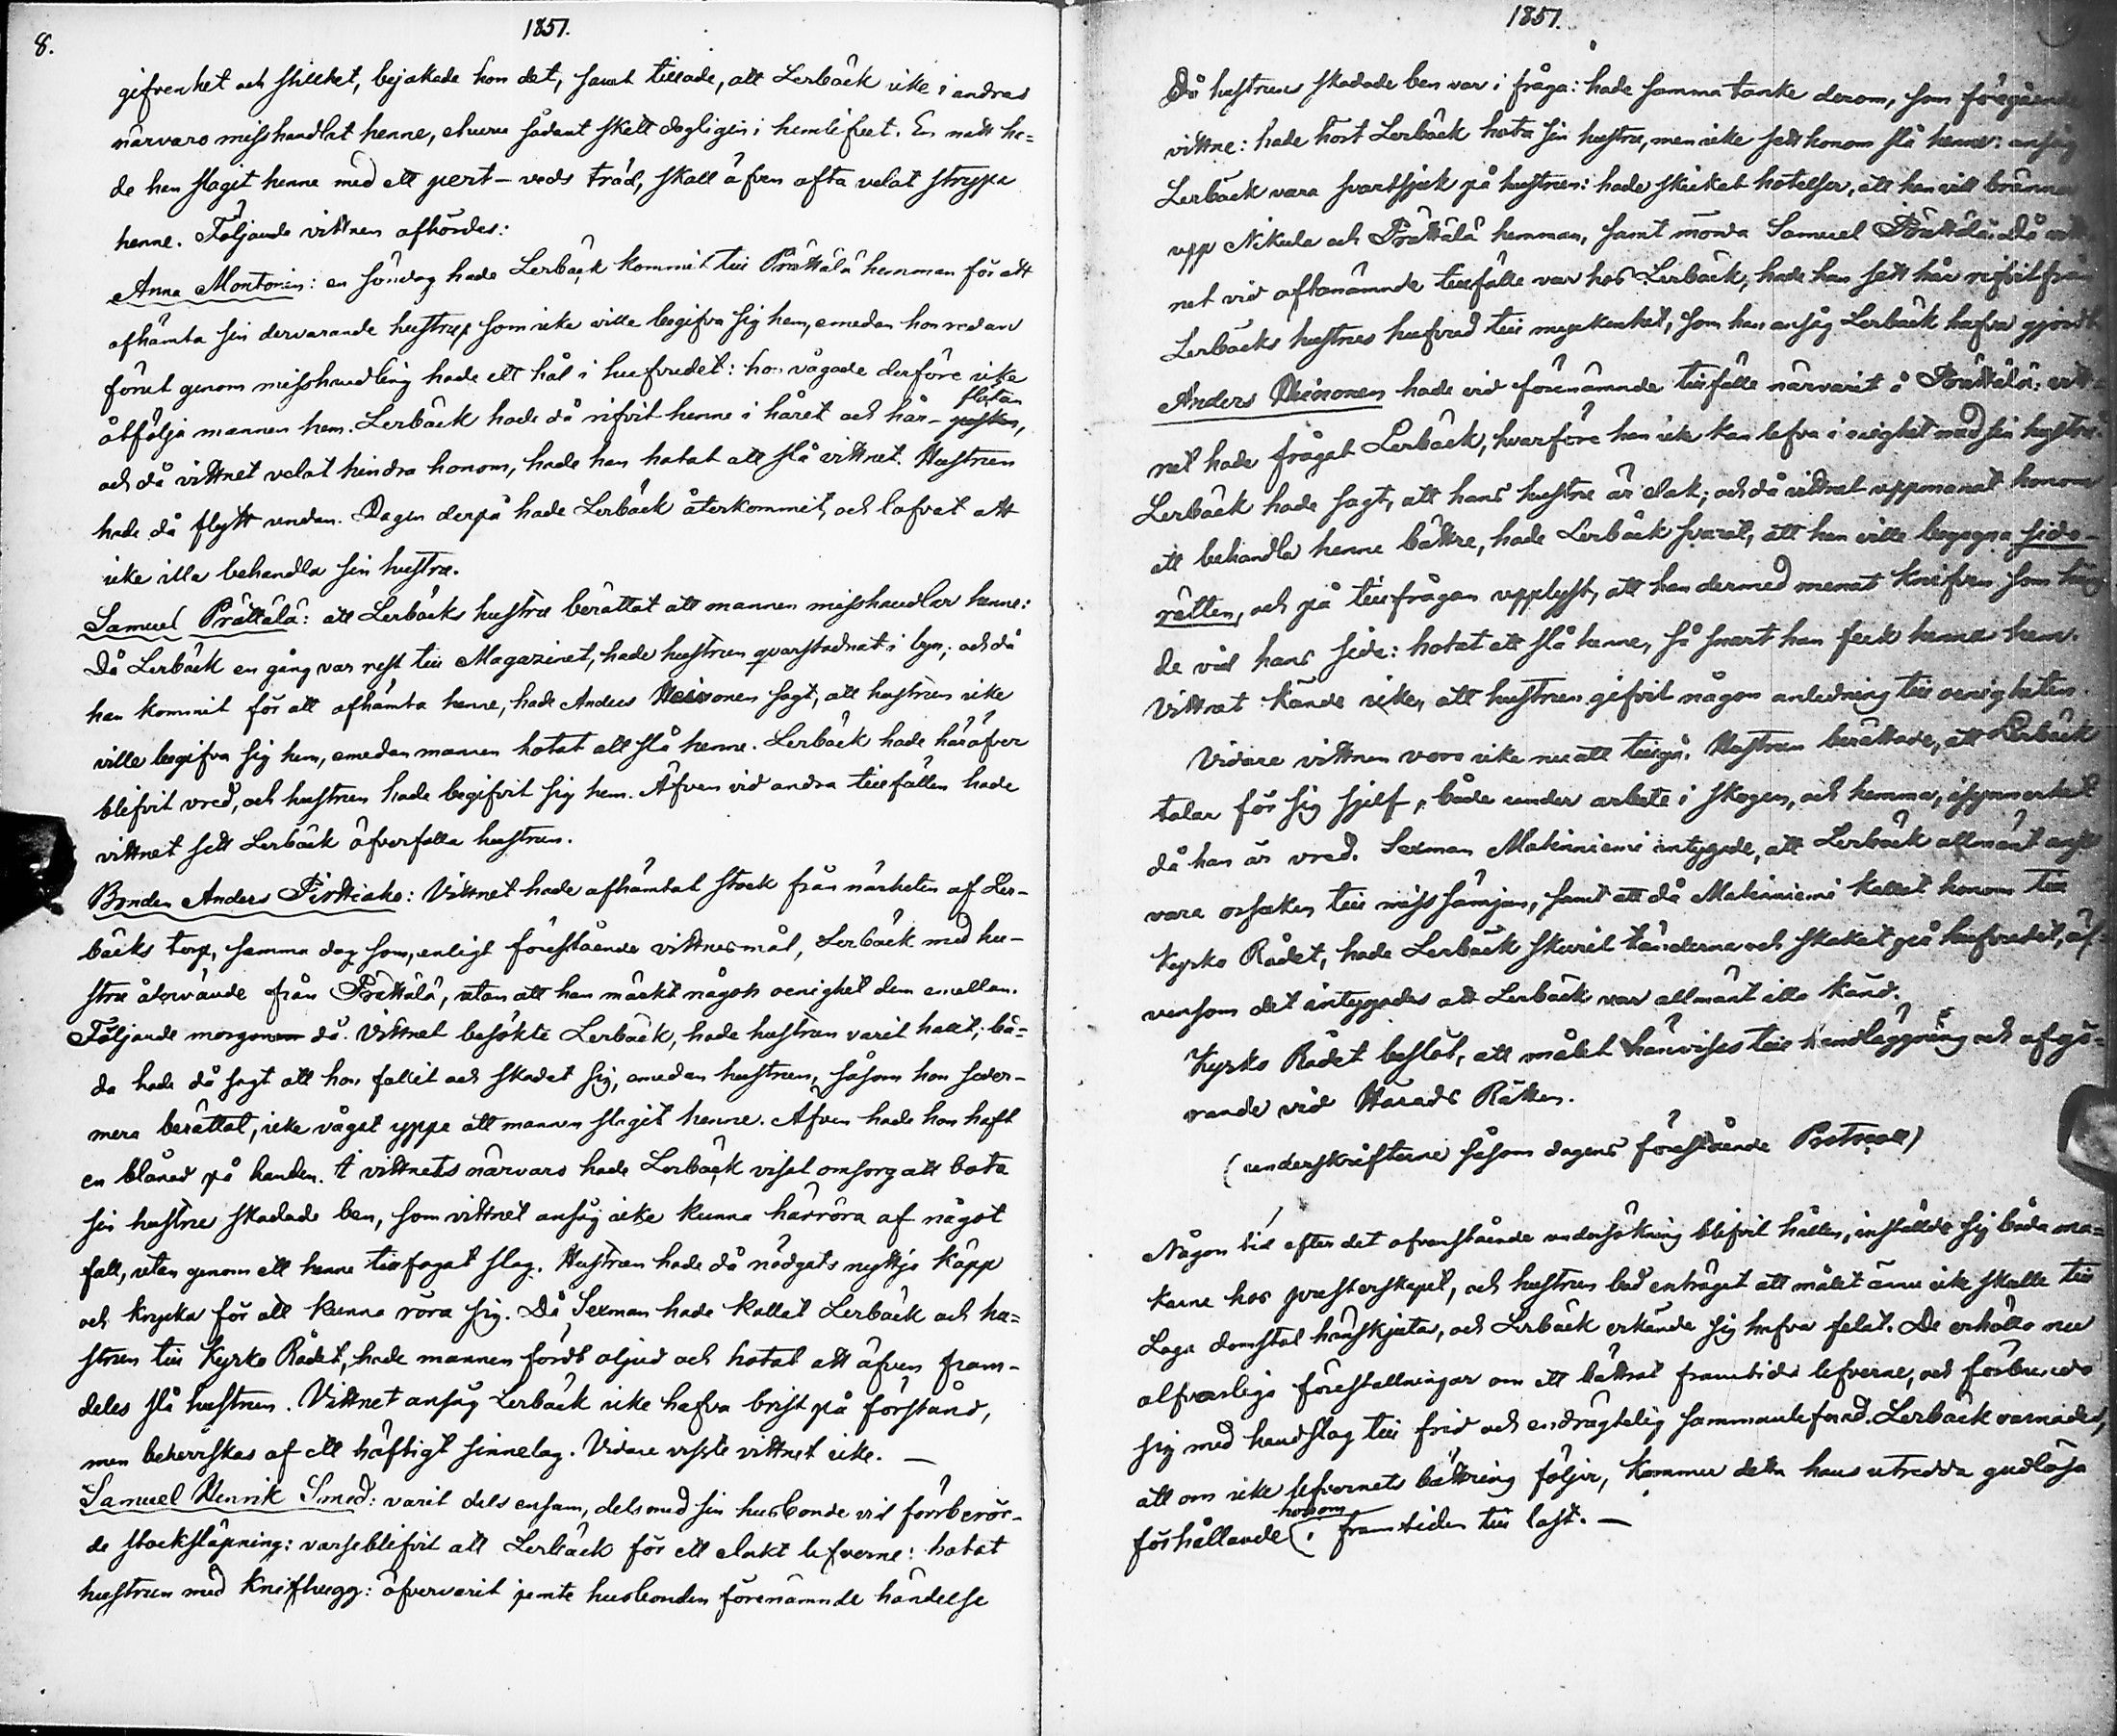 8.
1851.
gifvenhet och stillhet, bejakade hon det, samt tillade, att Lerbäck icke i andras
närvaro misshandlat henne, ehuru sådant skett dagligen i hemlifvet. En natt ha-
de han slaget henne med ett pert-veds träd, skall äfven ofta velat strypa
henne. Följande vittnen afhördes:
Anna Montonin: en söndag hade Lerbäck kommit till Prättälä hemman för att
afhämta sin dervarande hustru, som icke ville begifva sig hem, emedan hon redan
förut genom misshandling hade ett hål i hufvudet: hon vågade derföre icke
åtfölja mannen hem. Lerbäck hade då rifvit henne i håret och hår-flätan,
och då vittnet velat hindra honom, hade han hotat att slå vittnet. Hustrun
hade då flytt undan. Dagen derpå hade Lerbäck återkommit, och lofvat att
icke illa behandla sin hustru.
Samuel Prättälä: att Lerbäcks hustru berättat att mannen misshandlar henne:
Då Lerbäck en gång var rest till Magazinet, hade hustrun qvarstadnat i byn; och då
han kommit för att afhämta henne, hade Anders sagt, att hustrun icke
ville begifva sig hem, emedan mannen hotat att slå henne. Lerbäck hade häröfver
blifvit vred, och hustrun hade begifvit sig hem. Äfven vid andra tillfällen hade
vittnet sett Lerbäck öfverfalla hustrun.
Bonden Anders: Vittnet hade afhämtat stock från närheten af Ler-
bäcks torp, samma dag som, enligt förestående vittnesmål, Lerbäck med hu-
stru återvände från Prättälä, utan att han märkt någon oenighet dem emellan.
Följande morgon då Vittnet besökte Lerbäck, hade hustrun varit halt; bå-
da hade då sagt att hon fallit och skadat sig, emedan hustrun, såsom hon seder-
mera berättat, icke vågat yppa att mannen slagit henne. Äfven hade hon haft
en blånad på handen. I vittnets närvaro hade Lerbäck visat omsorg att bota
sin hustrus skadade ben, som vittnet ansåg icke kunna härröra af något
fall, utan genom ett henne tillfogat slag. Hustrun hade då nödgats nyttja käpp
och krycka för att kunna röra sig. Då Sexman hade kallat Lerbäck och hu-
strun till Kyrko Rådet, hade mannen fördt oljud och hotat att äfven fram-
deles slå hustrun. Vittnet ansåg Lerbäck icke hafva brist på förstånd,
men beherrskas af ett häftigt sinnelag. Vidare visste vittnet icke. —
Samuel Henrik Smed: varit dels ensam, dels med sin husbonde vid förrberör-
de stocksläpning: varseblifvit att Lerbäck för ett elakt lefverne: hotat
hustrun med knifhugg: öfvervarit jemte husbonden förenämnde händelse
1851.
Då hustruns skadade ben var i fråga: hade samma tanke derom, som föregående
vittne: hade hört Lerbäck hota sin hustru, men icke sett honom slå henne: ansåg
Lerbäck vara svartsjuk på hustrun: hade skickat hotelser, att han vill bränna
upp Nikula och Prättälä hemman, samt mörda Samuel Prättälä. Då vitt-
net vid oftanämnde tillfälle var hos Lerbäck, hade han sett hår rifvit från
Lerbäcks hustrus hufvud till myckenhet, som han ansåg Lerbäck hafva gjordt.
Anders hade vid förenämnde tillfälle närvarit å Prättälä: vitt-
net hade frågat Lerbäck, hvarföre han icke kan lefva i enighet med sin hustru.
Lerbäck hade sagt, att hans hustru är elak; och då vittnet uppmanat honom
att behandla henne bättre, hade Lerbäck svarat, att han ville begagna sido-
rätten, och på tillfrågan upplyst, att han dermed menat knifven som häng-
de vid hans sida: hotat att slå henne, så snart han feck henne hem.
Vittnet kände icke, att hustrun gifvit någon anledning till oenigheten.
Vidare vittnen voro icke nu att tillgå. Hustrun berättade, att Lerbäck
talar för sig sjelf, både under arbete i skogen, och hemma, isynnerhet
då han är vred. Sexman Matinniemi intygade, att Lerbäck allmänt anses
vara orsaken till missämjan, samt att då Matinniemi kallat honom till
Kyrko Rådet, hade Lerbäck skurit tänderna och skakat på hufvudet, äf-
vensom det intygades att Lerbäck var allmänt illa känd.
Kyrko Rådet beslöt, att målet hänvises till handläggning och afgö-
rande vid Härads Rätten.
(underskrifterne såsom dagens förestående Protocoll)
Någon tid efter det ofvanstående undersökning blifvit hållen, inställde sig båda ma-
karne hos presterskapet, och hustrun bad enträget att målet ännu icke skulle till
Laga domstol hänskjutas, och Lerbäck erkände sig hafva felat. De erhöllo nu
alfvarliga föreställningar om ett bättrat framtida lefverne, och förbundo
sig med handslag till frid och endrägtelig sammanlefnad. Lerbäck varnades,
att om icke lefvernets bättring följer, kommer detta hans utredda gudlösa
förhållande honom i framtiden till last. —